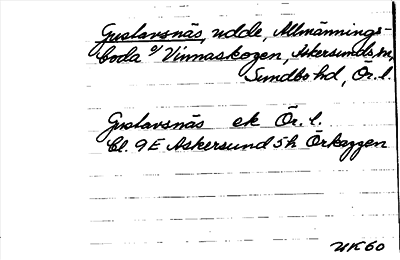 Gustavsnäs, udde, Allmännings-
boda o/ Vinnaskogen, Askersunds sn,
Sundbo hd, Ör. l.
Gustavsnäs ek Ör. l.
Bl. 9E Askersund 5h Örkaggen
UK 60